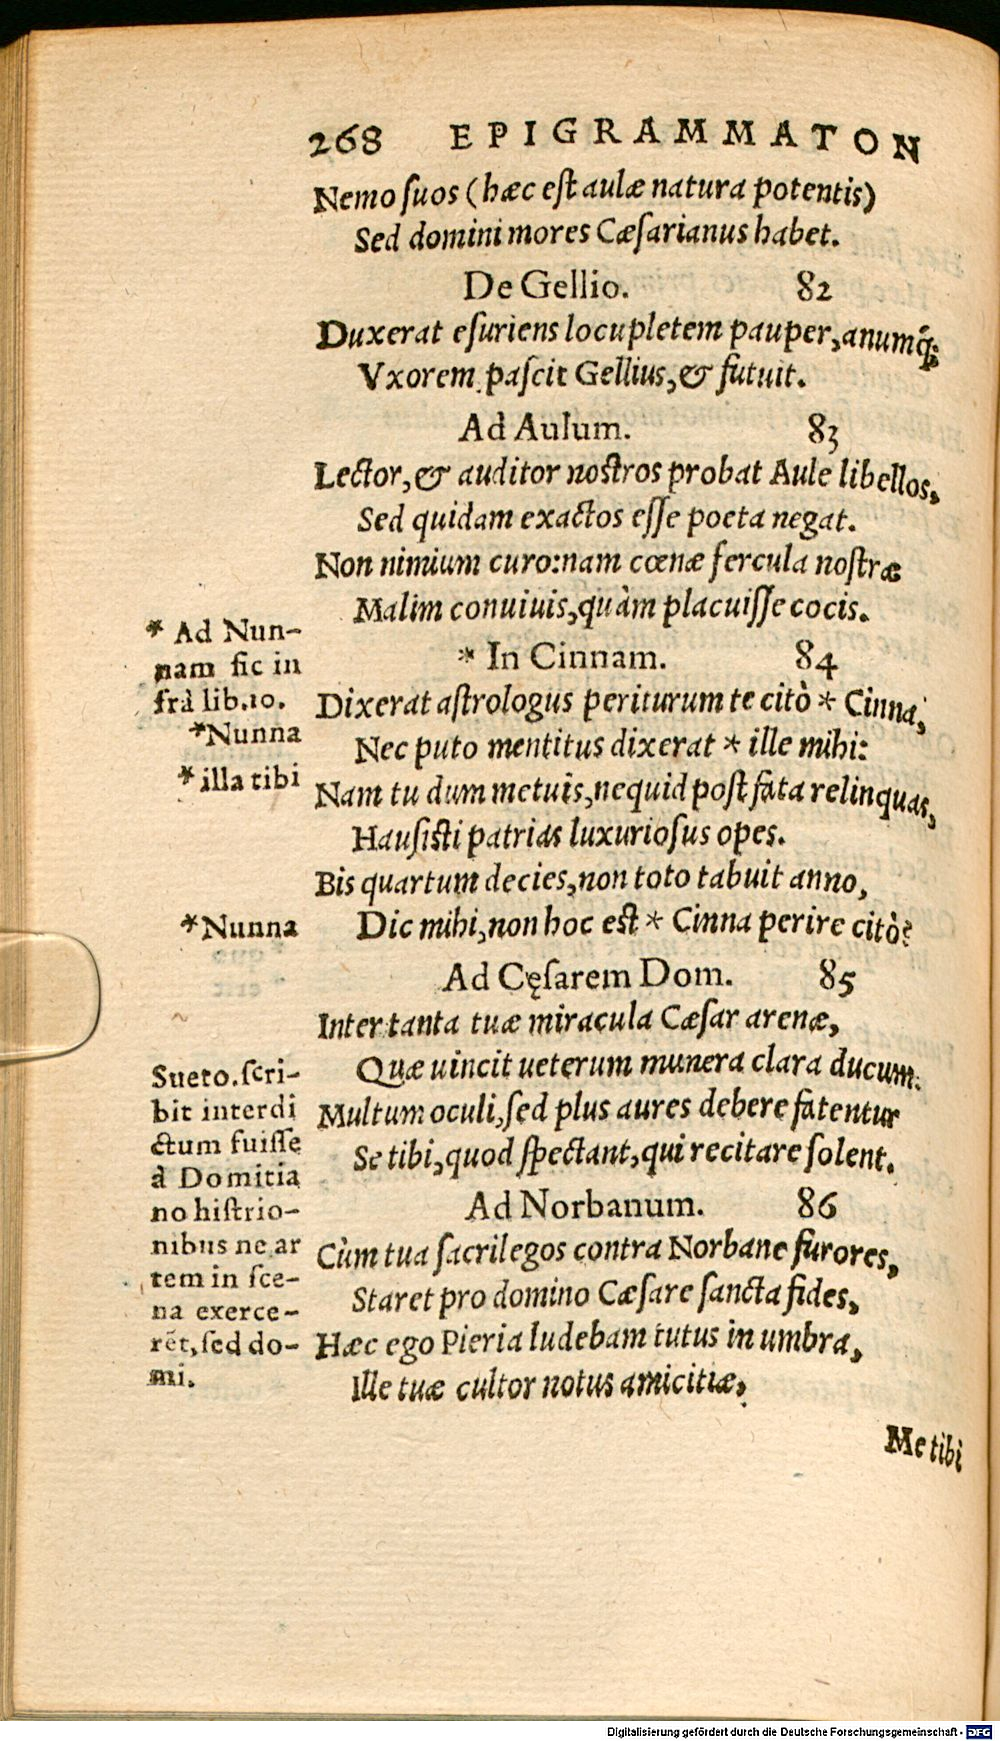 268 EPIGRAMMATON
Nemo ſuos (hæc eſt aulæ natura potentis)
Sed domini mores Cæſarianus habet.
De Gellio. 82
Duxerat eſuriens locupletem pauper, anumq́;
Vxorem paſcit Gellius, & futuit.
Ad Aulum. 83
Lector, & auditor noſtros probat Aule libellos,
Sed quidam exactos eſſe poeta negat.
Non nimium curo: nam cœnæ fercula noſtræ
Malim conuiuis, quàm placuiſſe cocis.
* In Cinnam. 84
Dixerat aſtrologus periturum te citò * Cinna,
Nec puto mentitus dixerat * ille mihi:
Nam tu dum metuis, nequid poſt fata relinquas,
Hauſiſti patrias luxurioſus opes.
Bis quartum decies, non toto tabuit anno,
Dic mihi, non hoc eſt * Cinna perire citò?
Ad Cęſarem Dom. 85
Inter tanta tuæ miracula Cæſar arenæ,
Quæ uincit ueterum munera clara ducum:
Multum oculi, ſed plus aures debere fatentur
Se tibi, quod ſpectant, qui recitare ſolent.
Ad Norbanum. 86
Cùm tua ſacrilegos contra Norbane furores,
Staret pro domino Cæſare ſancta fides,
Hæc ego Pieria ludebam tutus in umbra,
Ille tuæ cultor notus amicitiæ,
Me tibi
* Ad Nun-
nam ſic in
frà lib.10.
*Nunna
*illa tibi
*Nunna
Sueto.ſcri-
bit interdi
ctum fuiſſe
à Domitia
no hiſtrio-
nibus ne ar
tem in ſce-
na exerce-
rẽt, ſed do-
mi.
Digitalisierung gefördert durch die Deutsche Forschungsgemeinschaft - DFG